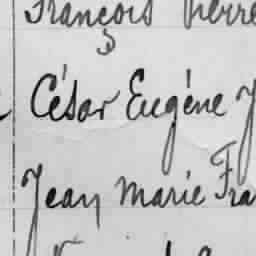 François Pierre
César Eugène J
Jean Marie Fra